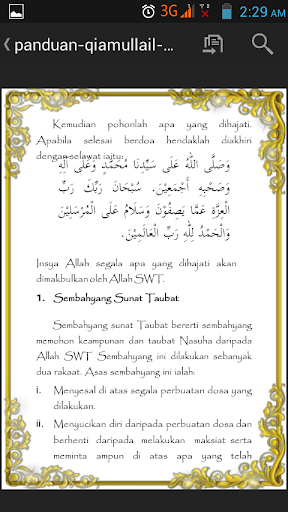 3G 2:29 AM
panduan-qiamullail-...
Kemudian pohonlah apa yang dihajati.
Apabila selesai berdoa hendaklah diakhiri
dengan selawat iaitu:
وَصَلَّى اللهُ عَلَى سَيِّدِنَا مُحَمَّدٍ وَعَلَى آلِهِ
وَصَحْبِهِ أَجْمَعِيْنَ. سُبْحَانَ رَبِّكَ رَبِّ
الْعِزَّةِ عَمَّا يَصِفُوْنَ وَسَلَامٌ عَلَى الْمُرْسَلِيْنَ
وَالْحَمْدُ لِلّٰهِ رَبِّ الْعَالَمِيْنَ.
Insya Allah segala apa yang dihajati akan
dimakbulkan oleh Allah SWT.
1. Sembahyang Sunat Taubat
Sembahyang sunat Taubat bererti sembahyang
memohon keampunan dan taubat Nasuha daripada
Allah SWT Sembahyang ini dilakukan sebanyak
dua rakaat. Asas sembahyang ini ialah:
i. Menyesal di atas segala perbuatan dosa yang
dilakukan.
ii. Menyucikan diri daripada perbuatan dosa dan
berhenti daripada melakukan maksiat serta
meminta ampun di atas apa yang telah